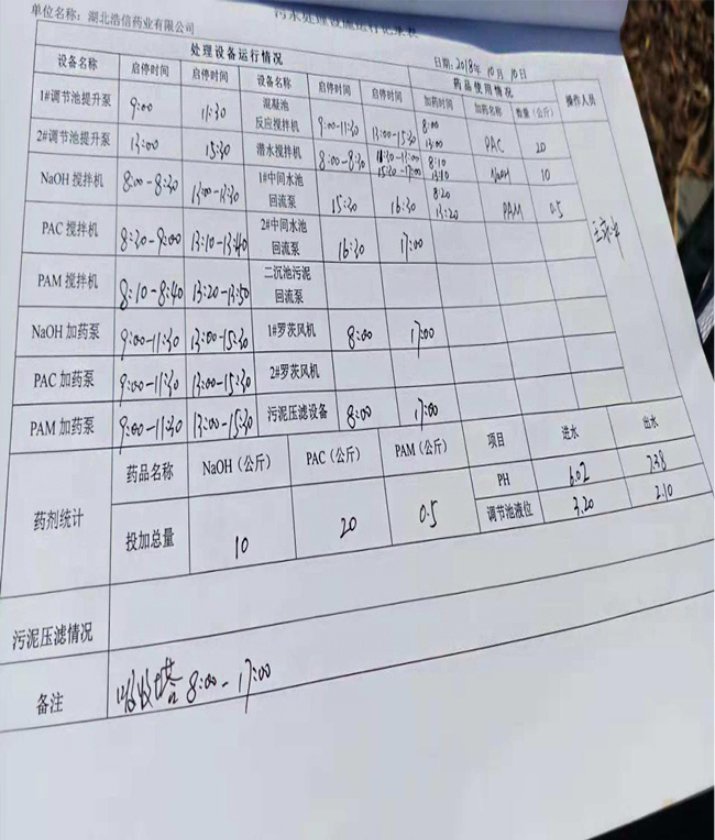 污水处理设施运行记录表
单位名称：湖北浩信药业有限公司
日期：2018年10月10日
处理设备运行情况 药品使用情况 操作人员
设备名称 启停时间 启停时间 设备名称 启停时间 启停时间 加药时间 加药名称 数量（公斤）
1#调节池提升泵 9:00 11:30 混凝池反应搅拌机 9:00-11:30 13:00-15:30 8:00 13:00 PAC 20
2#调节池提升泵 13:00 15:30 潜水搅拌机 8:00-8:30 15:30-17:00 8:10 13:10 NaOH 10
NaOH 搅拌机 8:00-8:30 13:00-13:30 1#中间水池回流泵 15:30 16:30 8:20 13:20 PAM 0.5
PAC 搅拌机 8:30-9:00 13:10-13:40 2#中间水池回流泵 16:30 17:00
PAM 搅拌机 8:10-8:40 13:20-13:50 二沉池污泥回流泵
NaOH 加药泵 9:00-11:30 13:00-15:30 1#罗茨风机 8:00 17:00
PAC 加药泵 9:00-11:30 13:00-15:30 2#罗茨风机
PAM 加药泵 9:00-11:30 13:00-15:30 污泥压滤设备 8:00 17:00
药剂统计 药品名称 NaOH（公斤） PAC（公斤） PAM（公斤） 项目 进水 出水
PH 6.02 7.38
投加总量 10 20 0.5 调节池液位 3.20 2.10
污泥压滤情况
备注 吸收塔 8:00-17:00